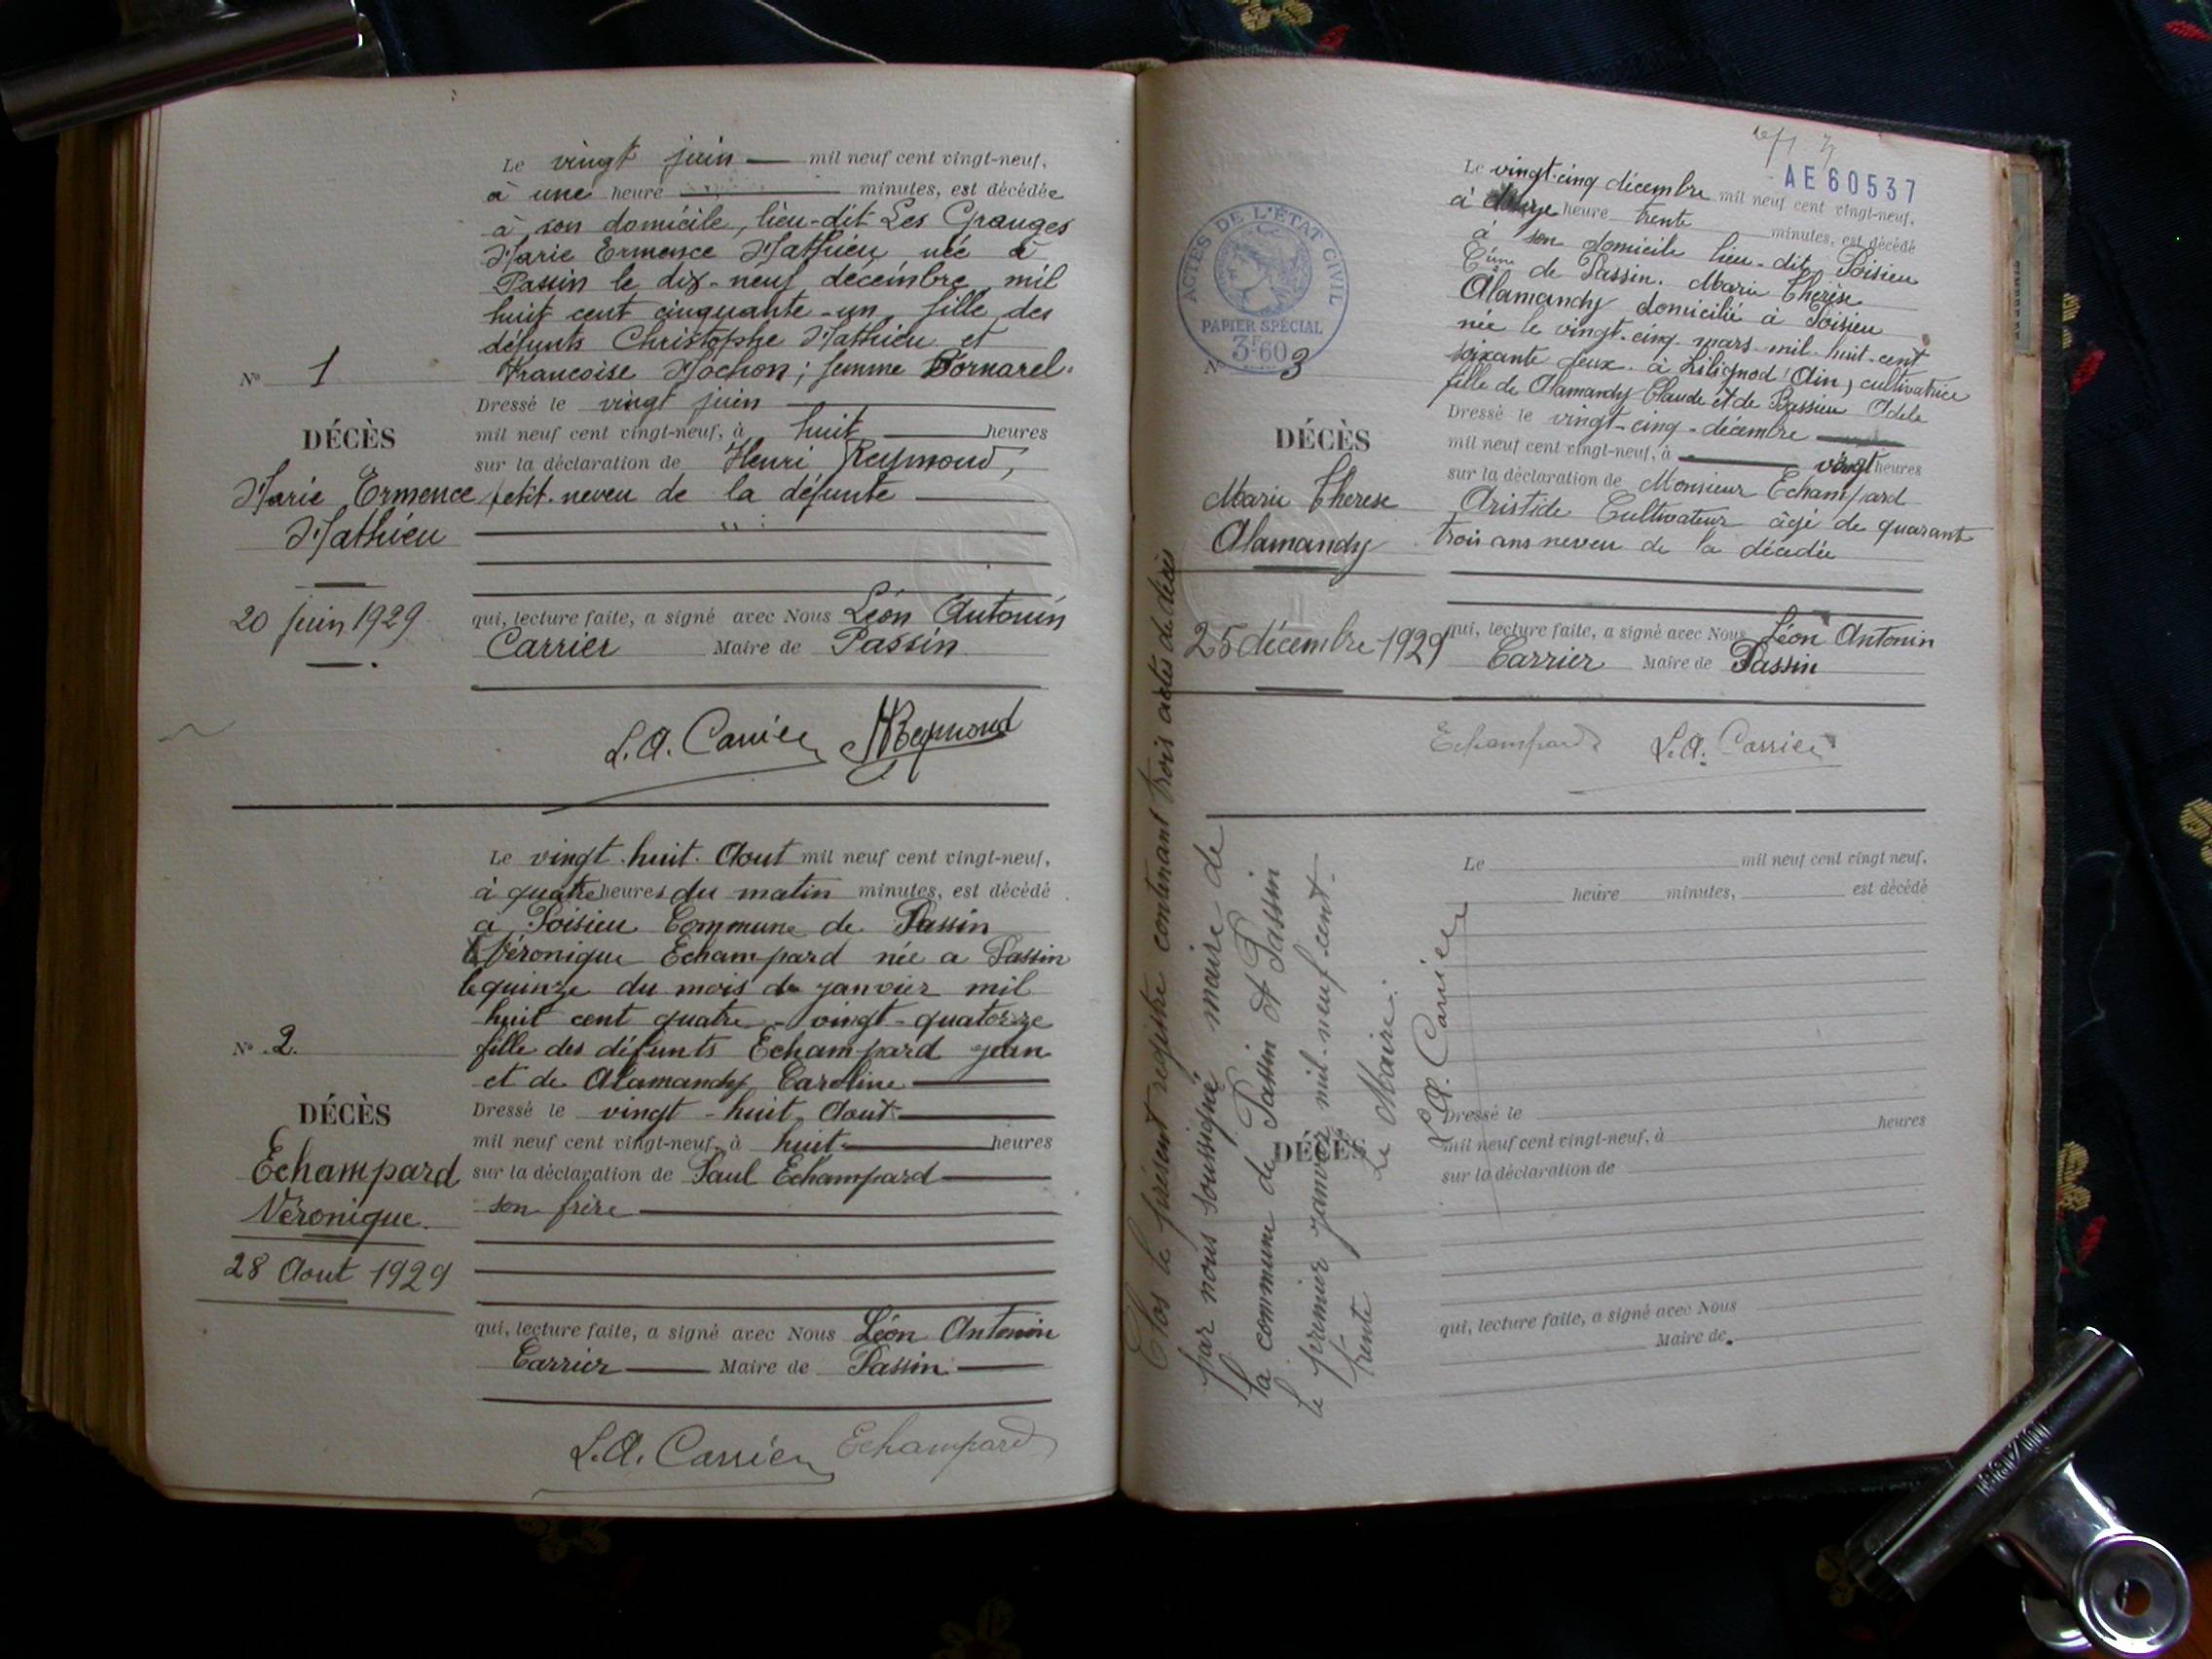 Le vingt juin mil neuf cent vingt-neuf,
à une heure minutes, est décédée
à son domicile, lieu-dit Les Granges
Marie Ermence Mathieu née à
Passin le dix-neuf décembre mil
huit cent cinquante-un, fille des
défunts Christophe Mathieu et
Francoise Mochon ; femme Bornarel.
N° 1
Dressé le vingt juin
DÉCÈS
mil neuf cent vingt-neuf, à huit heures
sur la déclaration de Henri Reymond,
Marie Ermence
petit-neveu de la défunte
Mathieu
20 juin 1929
qui, lecture faite, a signé avec Nous Léon Antonin
Carrier Maire de Passin
L.A. Carrier HReymond
Le vingt-huit Aout mil neuf cent vingt-neuf,
à quatre heures du matin minutes, est décédé
a Poisieu Commune de Passin
Véronique Echampard née a Passin
le quinze du mois de janvier mil
huit cent quatre-vingt-quatorze
N° 2.
fille des défunts Echampard jean
et de Alamandy Caroline
DÉCÈS
Dressé le vingt-huit Aout
mil neuf cent vingt-neuf, à huit heures
Echampard
sur la déclaration de Paul Echampard
Véronique.
son frère
28 Aout 1929
qui, lecture faite, a signé avec Nous Léon Antonin
Carrier Maire de Passin
L.A. Carrier Echampard
AE60537
ACTES DE L'ÉTAT CIVIL
PAPIER SPÉCIAL
3F60
Le vingt-cinq décembre mil neuf cent vingt-neuf,
à heure trente minutes, est décédé
à son domicile lieu-dit Poisieu
Cune de Passin. Marie Therèse
Alamandy domicilié à Poisieu
née le vingt-cinq mars mil-huit-cent
soixante deux à Lilignod (Ain) cultivatrice
N° 3
fille de Alamandy Claude et de Bassieu Adele
DÉCÈS
Dressé le vingt-cinq-decembre
mil neuf cent vingt-neuf, à vingt heures
Marie Therese
sur la déclaration de Monsieur Echampard
Aristide Cultivateur âgé de quarant
Alamandy
trois ans neveu de la décédée
25 décembre 1929
qui, lecture faite, a signé avec Nous Léon Antonin
Carrier Maire de Passin
Echampard L.A. Carrier
Le mil neuf cent vingt neuf,
heure minutes, est décédé
DÉCÈS
Dressé le
mil neuf cent vingt-neuf, à heures
sur la déclaration de
qui, lecture faite, a signé avec Nous
Maire de
Clos le présent registre contenant trois actes de décès
par nous soussigné maire de
la commune de Passin et Passin
le premier janvier mil-neuf-cent-
trente
Le Maire:
L.A. Carrier